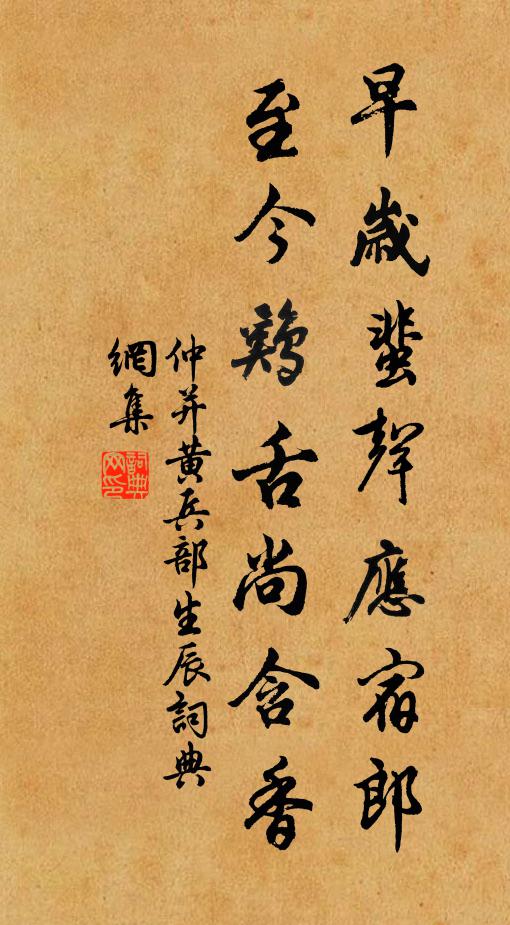 早歲蜚聲應宿郎
至今鷄舌尚含香
仲并黄兵部生辰詞典
網集
詞典网印